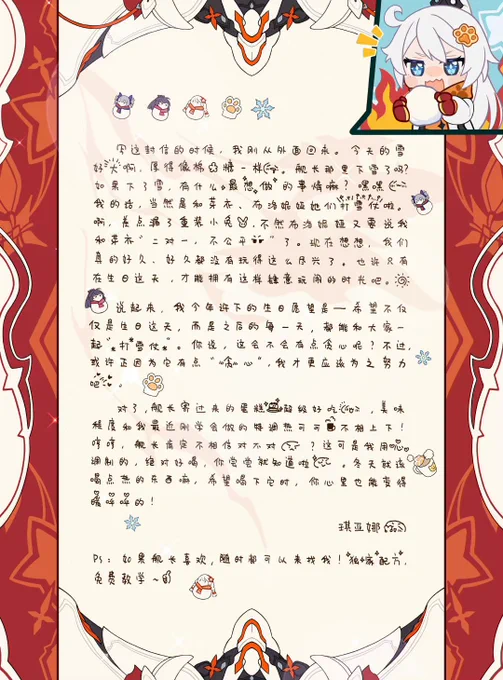 写这封信的时候，我刚从外面回来。今天的雪
好大啊，厚得像棉花糖一样。舰长那里下雪了吗？
如果下了雪，有什么最想做的事情嘛？嘿嘿
我的话，当然是和芽衣、布洛妮娅她们打雪仗啦。
啊，差点漏了重装小兔，不然布洛妮娅又要说我
和芽衣“二对一，不公平”了。现在想想，我们
真的好久、好久都没有玩得这么尽兴了。也许只有
在生日这天，才能拥有这样肆意玩闹的时光吧。
说起来，我今年许下的生日愿望是——希望不仅
仅是生日这天，而是之后的每一天，都能和大家一
起“打雪仗”。你说，这会不会有点贪心呢？不过，
或许正因为它有点“贪心”，我才更应该为之努力
吧
对了，舰长寄过来的蛋糕超级好吃，美味
程度和我最近刚学会做的特调热可可不相上下！
哼哼，舰长肯定不相信对不对？这可是我用心
调制的，绝对好喝，你尝尝就知道啦。冬天就该
喝点热的东西嘛，希望喝下它时，你心里也能变得
暖呼呼的！
琪亚娜
Ps：如果舰长喜欢，随时都可以来找我！独家配方，
免费教学~